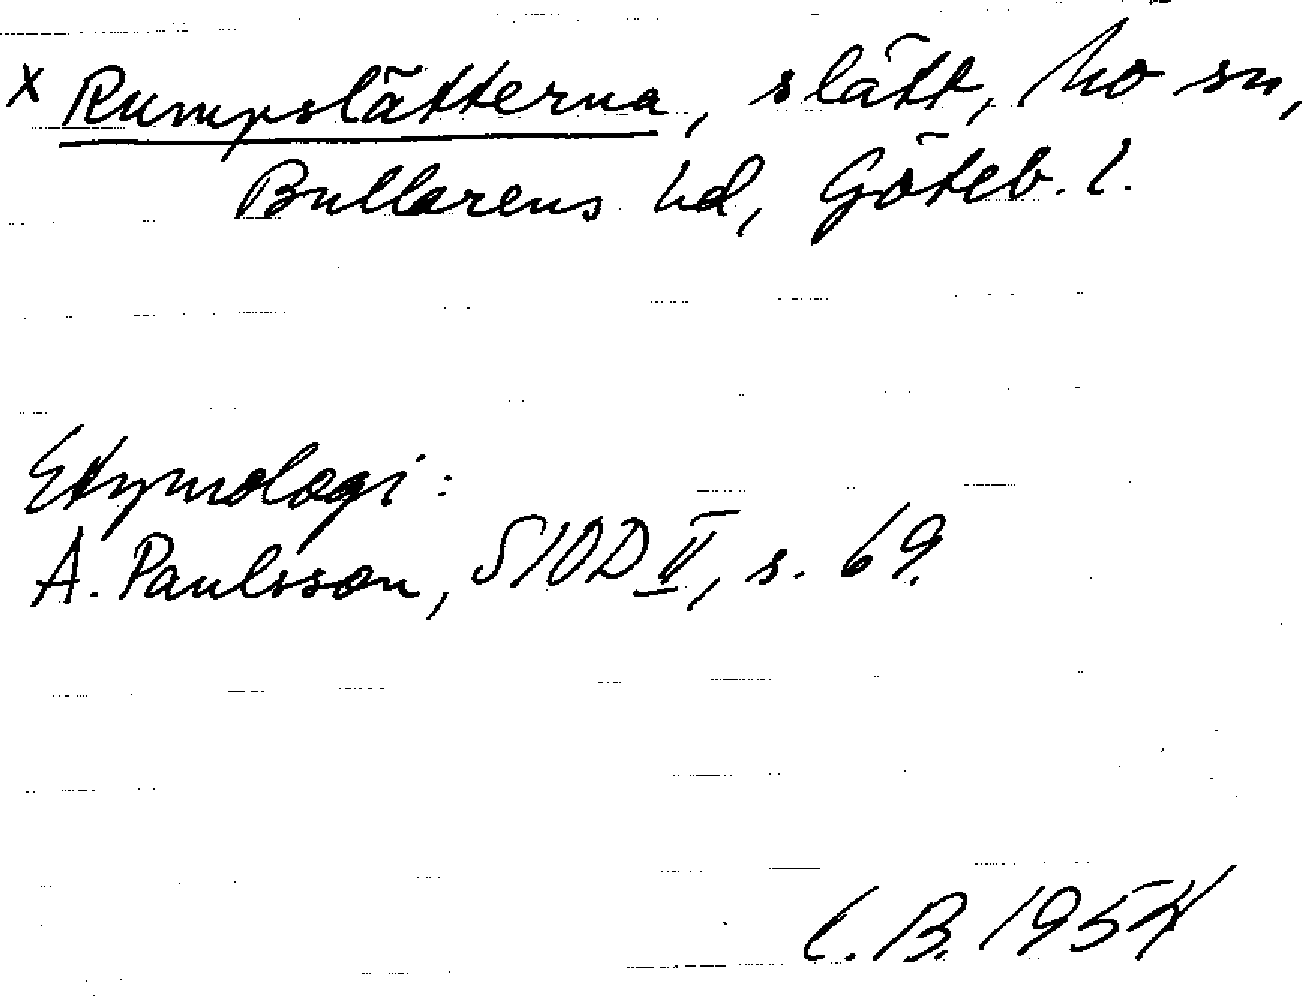 x Rumpslätterna, slått, Mo sn,
Bullarens hd, Göteb. l.
Etymologi:
A. Paulsson, SIOD II, s. 69.
C. B. 1954